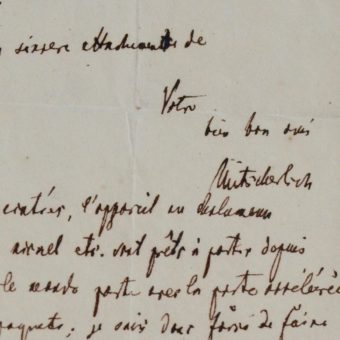 sincere attachement de
Votre
bien bon ami
Mitscherlich
l'appareil au
nickel etc. sont prêts à partir depuis
le monde porte avec la porte accélérée
paquets; je suis donc forcé de faire